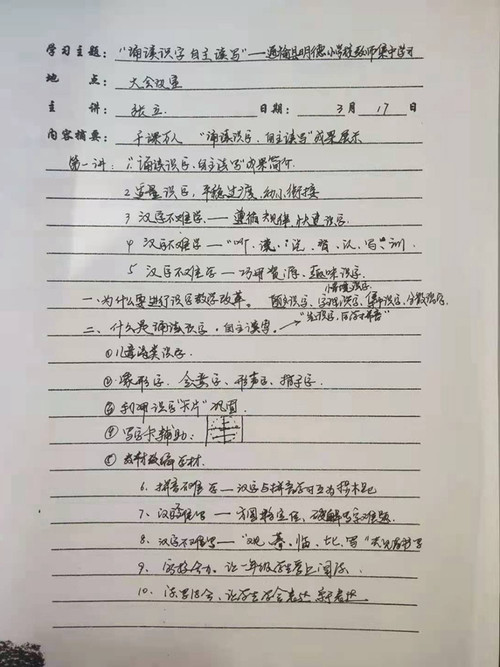 学习主题："诵读识字 自主读写"——通榆县明德小学校教师集中学习
地 点：大会议室
主 讲：张立 日期：3月17日
内容摘要：千课万人 "诵读识字、自主读写"成果展示
第一讲：1."诵读识字、自主读写"成果简介
2 尽量识字，平稳过度，幼小衔接
3 汉字不难学——遵循规律 快速识字
4 汉字不难学——"听、读、 、 、习、认、写"训
5 汉字不难学——巧用资源、趣味识字
情境识字
一、为什么要进行识字教学改革。 识字、字理识字、集中识字、字族识字
二、什么是诵读识字、自主读写。→"先识字，后学拼音"
①儿童 类识字
②象形字、会意字、形声字、指事字
③利用识字"卡片"巩固
④写字卡辅助：
⑤教材改编 材
6、拼音不难学——汉字与拼音学习互为拐杖
7、汉字难写——方圆 ，破解写字难题
8、汉字不难写——"观、摹、临、比、写"
9、 ，让一年级学生爱上阅读
10、 ，让学生学会表达